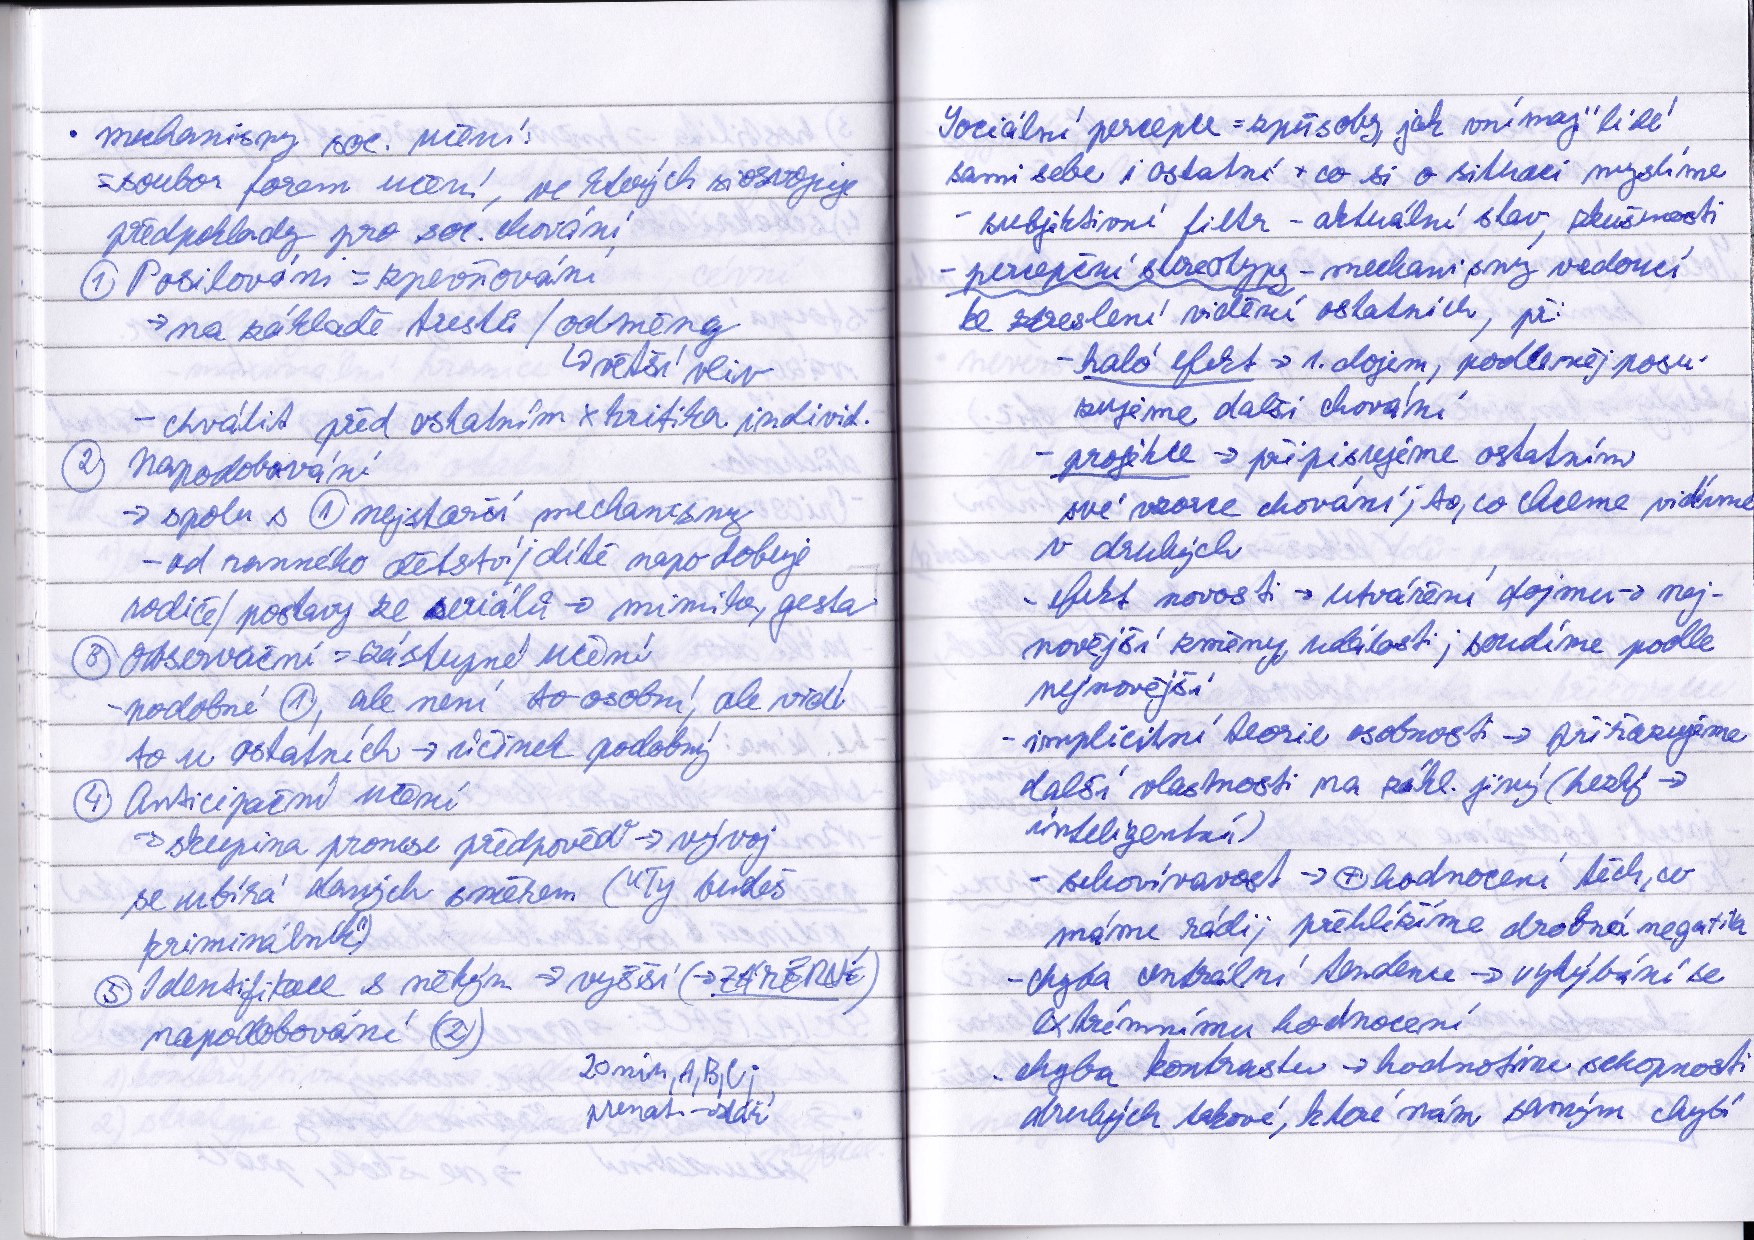 • mechanismy soc. učení:
= soubor forem učení, ve kterých si osvojuje
předpoklady pro soc. chování
① Posilování = zpevňování
→ na základě trestů / odměny
↳ větší vliv
- chválit před ostatním x kritika individ.
② Napodobování
→ spolu s ① nejstarší mechanismy
- od ranného dětství; dítě napodobuje
rodiče/ postavy ze seriálů → mimika, gesta
③ Observační = zástupné učení
- podobné ①, ale není to osobní, ale vidí
to u ostatních → účinek podobný
④ Anticipační učení
→ skupina pronese předpověď → vývoj
se ubírá daných směrem („Ty budeš
kriminálník“)
⑤ Identifikace s někým → vyšší (→ ZÁMĚRNÉ)
napodobování (②)
20 min, A, B, C;
prenat. → stáří
Sociální percepce = způsoby, jak vnímají lidé
sami sebe i ostatní + co si o situaci myslíme
- subjektivní filtr - aktuální stav, zkušenosti
- percepční stereotypy - mechanismy vedoucí
ke zkreslení vidění ostatních, př:
- haló efekt → 1. dojem, podle něj posu-
zujeme další chování
- projekce → připisujeme ostatním
své vzorce chování; to, co chceme vidíme
v druhých
- efekt novosti → utváření dojmu → nej-
novější změny, události; soudíme podle
nejnovější
- implicitní teorie osobnosti → přiřazujeme
další vlastnosti na zákl. jiný (hezký →
inteligentní)
- shovívavost → ⊕ hodnocení těch, co
máme rádi; přehlížíme drobná negativa
- chyba centrální tendence → vyhýbání se
extrémnímu hodnocení
- chyba kontrastu → hodnotíme schopnosti
druhých takové, které nám samým chybí